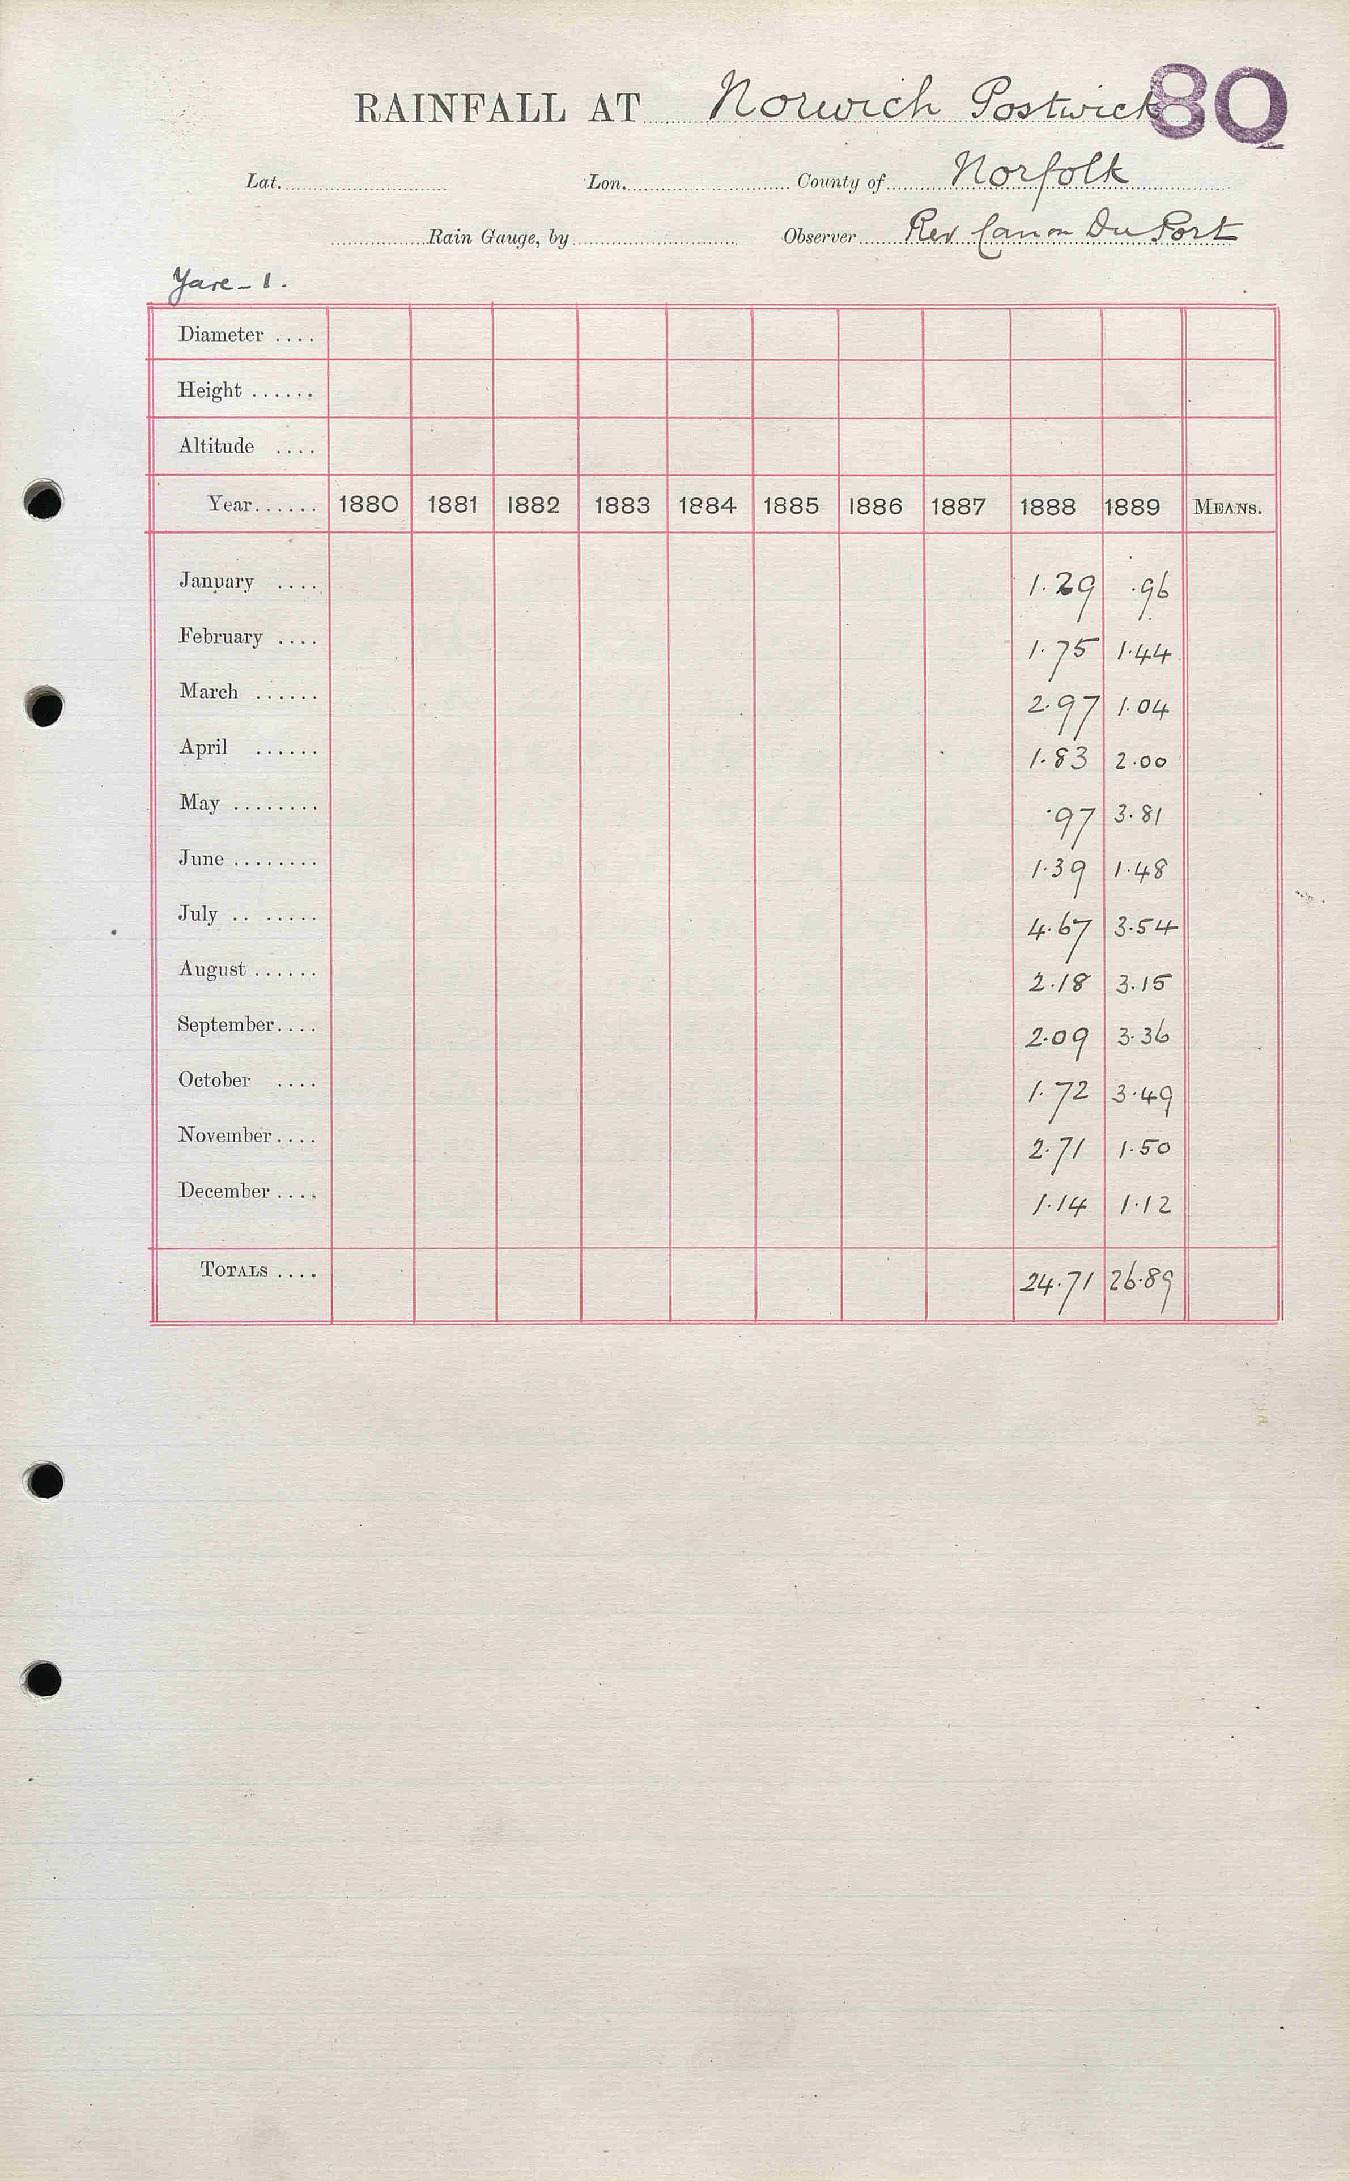 RAINFALL AT Norwich Postwick 80
Lat. Lon. County of Norfolk
Rain Gauge, by Observer Rev Canon Du Port
Yare - 1.
Diameter ....
Height ......
Altitude ....
Year...... 1880 1881 1882 1883 1884 1885 1886 1887 1888 1889 MEANS.
January .... 1.29 .96
February .... 1.75 1.44
March ...... 2.97 1.04
April ...... 1.83 2.00
May ........ .97 3.81
June ........ 1.39 1.48
July .. ..... 4.67 3.54
August ...... 2.18 3.15
September.... 2.09 3.36
October .... 1.72 3.49
November.... 2.71 1.50
December .... 1.14 1.12
TOTALS .... 24.71 26.89